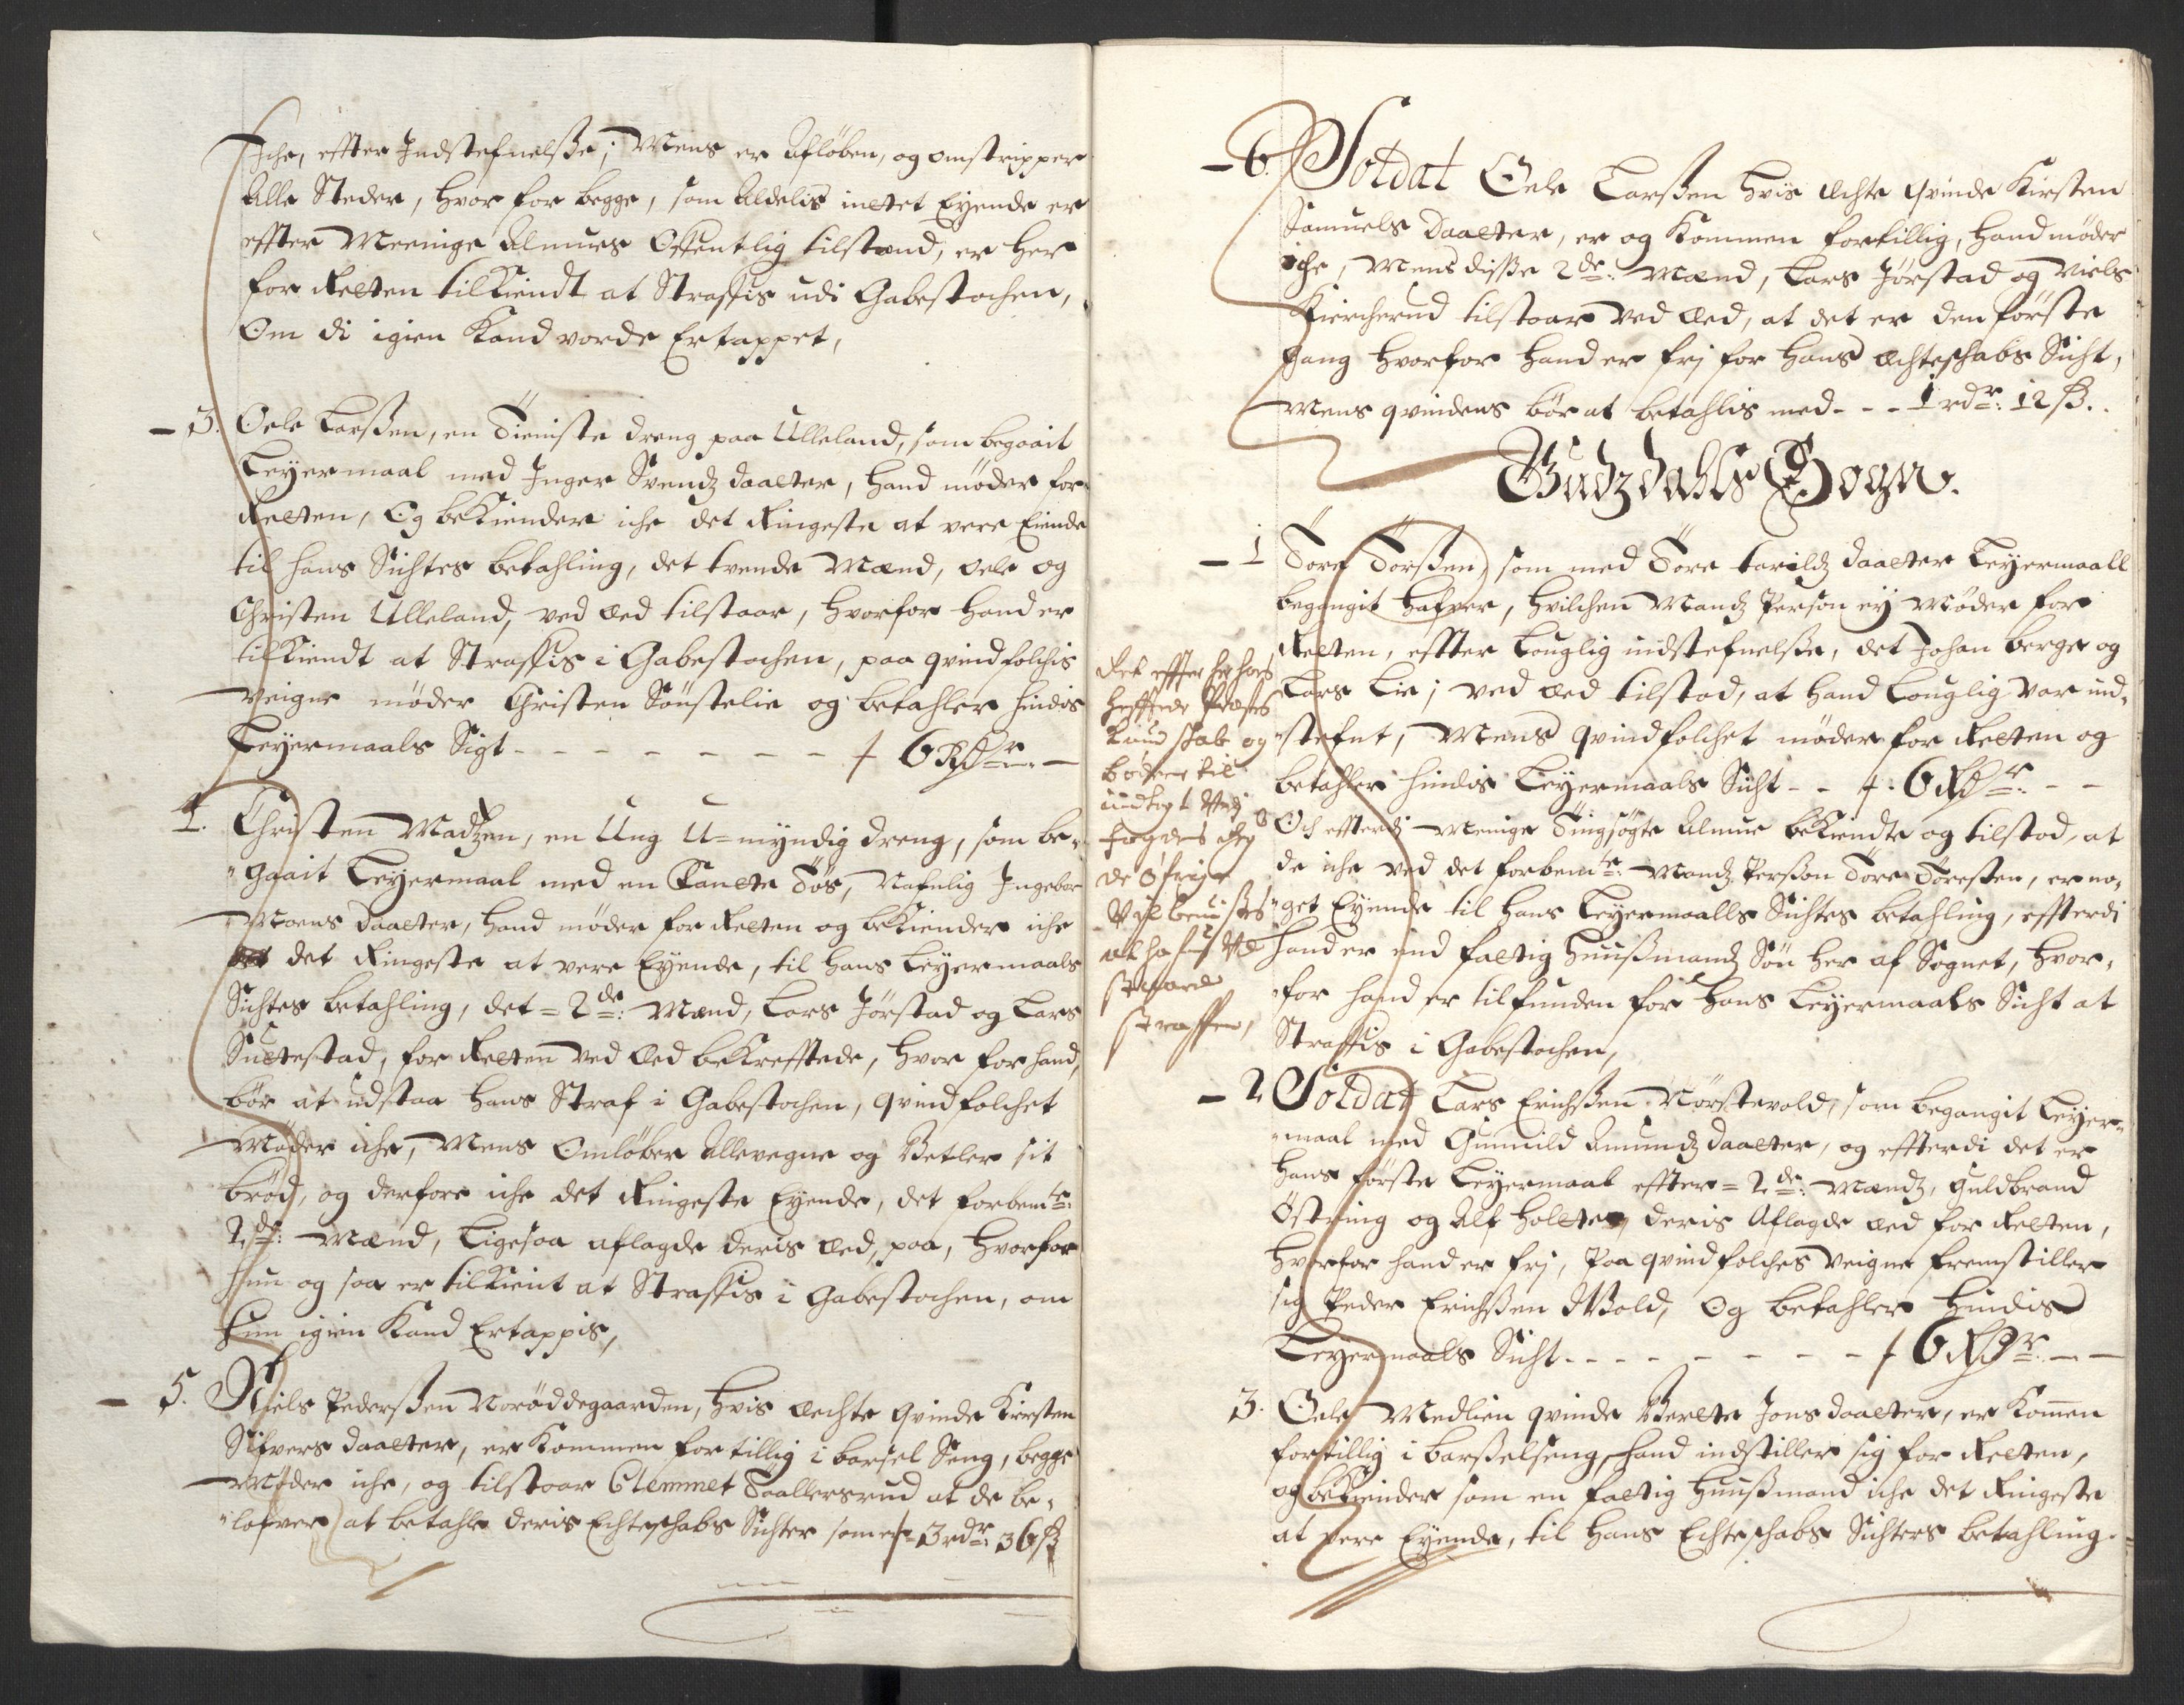 iche, effter Indstefnelsse; Mens er Afløben, og omstripper
Alle Steder, hvor for begge, som Aldelis intet Eyende er
effter Meenige Almues Offentlig tilstand, er her
for Retten tilkiendt at Straffis udi Gabestochen,
Om di igien Kand vorde Ertappet,
3. Oele Larssen, en Tieniste dreng paa Ulleland, som begaait
Leyermaal med Inger Svendz daatter, hand møder for
Retten, Og bekiender iche det Ringeste at vere Eiende
til hans Sichtes betahling, det tvende Mænd, oele og
Christen Ulleland, ved æd tilstaar, hvorfor hand er
tilkiendt at Straffis i Gabestochen, paa qvindfolchis
veigne møder Christen Sønstelie og betahler hindis
Leyermaals Sigt - - - - - - - - 6 Rdr: -
4. Christen Madtzen, en Ung U=myndig dreng, som be-
gaait Leyermaal med en Taatte Tøs, Nafnlig Ingebor
Moens daatter, hand møder for Retten og bekiender iche
det Ringeste at vere Eyende, til hans Leyermaals
Sichtes betahling, det = 2de: Mænd, Lars Jørstad og Lars
Sultestad, for Retten ved æd bekrefftede, hvor for hand,
bør at udstaa hans Straf i Gabestochen, qvindfolchet
Møder iche, Mens Omløber Allevegne og Betler sit
brød, og derfore iche det Ringeste Eyende, det forbemte:
2de: Mænd, Ligesaa aflagde deris æd, paa, hvorfor
hun og saa er tilkient at Straffis i Gabestochen, om
hun igien Kand Ertappis,
5. Niels Pederssen Norøddegaarden, hvis æchte qvinde Kirsten
Sifvers daatter, er Kommen for tillig i barsel Seng, begge
Møder iche, og tilstaar Clemmet Taallersrud at de be-
lofver at betahle deris Echteschabs Sichter som er 3 rdr: 36 ß
6. Soldat Oele Larssen hvis Echte qvinde Kirsten
Samuels daatter, er og Kommen fortillig, hand møder
iche, Mens disse 2de: Mænd, Lars Jørstad og Niels
Kiercherud tilstaar ved æd, at det er den første
gang hvorfor hand er fri for hans ægteschabs Sicht,
Mens qvindens bør at betahlis med - - - 1 rdr: 12 ß.
Gudzdahls Sogn.
1 Tore Torssen, som med Tore tarildz daatter Leyermaall
begangit hafver, hvilchen Mandz Person ey Møder for
Retten, effter Louglig indstefnelsse, det Johan berge og
Lars Lie; ved æd tilstod, at hand Louglig var ind-
stefnt, Mens qvindfolchet møder for Retten og
betahler hindis Leyermaals Sicht - - 6 Rdr: - -
Och efterdj Menige Tingsøgte Almue bekiendte og tilstod, at
de iche ved det forbemte: Mandz Persson Tore Toressen, er no-
get Eyende til hans Leyermaalls Sichtes betahling, effterdi
hand er end fattig huussmandz Søn her af Sognet, hvor-
for hand er tilfunden for hans Leyermaals Sicht at
Straffis i Gabestochen,
Ret effter her hoes
hefftede
Kundschab og
bødene til
indtegt
fogdens
de øfrige
straffen,
2 Soldat Lars Erichssen Nørstevold, som begangit Leyer-
maal med Gunnild Amundz daatter, og effterdi det er
hans første Leyermaal effter = 2de: Mændz, Guldbrand
Østring og Alf Holtte, deris Aflagde æd for Retten,
hvorfor hand er fri, Paa qvindfolches veigne fremstiller
sig Peder Erichssen Wold, Og betahler hindis
Leyermaals Sicht - - - - - - - - 6 Rdr: - -
3. Oele Medlien qvinde Berette Jons daatter, er Komen
fortillig i barsselseng, hand indstiller sig for Retten,
og bekiender som en fattig huussmand iche det Ringeste
at vere Eyende, til hans Echteschabs Sichters betahling